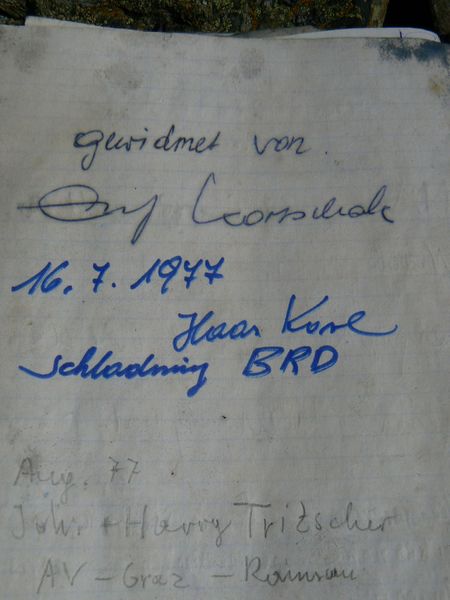 gewidmet von
16. 7. 1977
Haas Karl
Schladming BRD
Aug. 77
Joh. + Harry Tritscher
AV - Graz - Ramsau